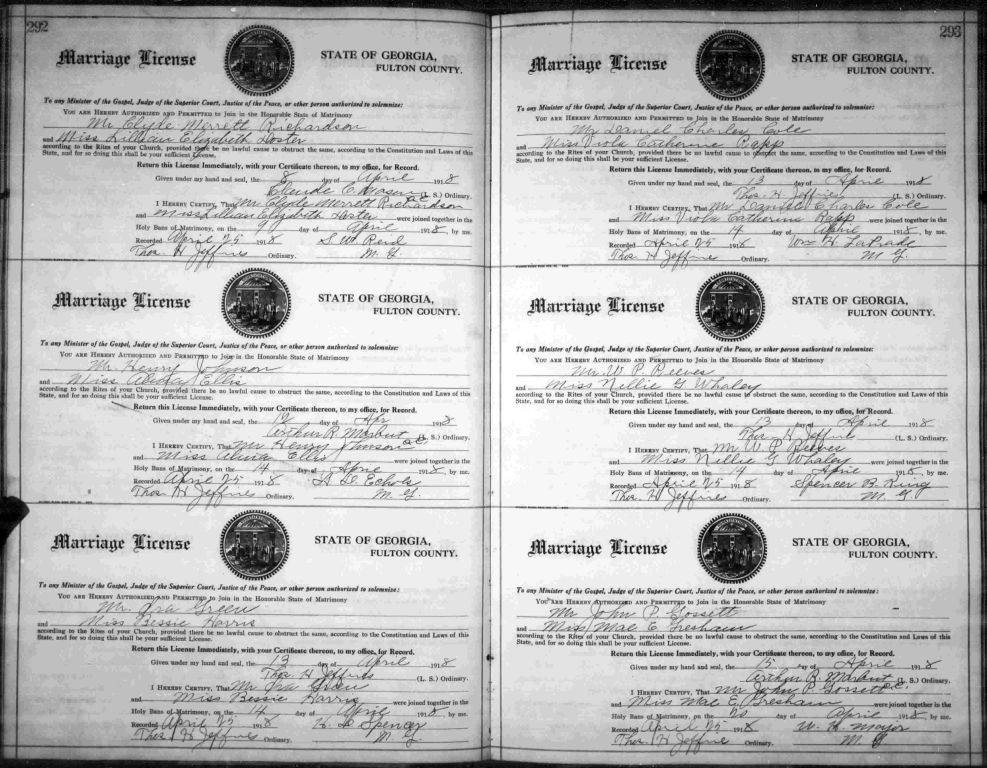 292
Marriage License
STATE OF GEORGIA,
FULTON COUNTY.
To any Minister of the Gospel, Judge of the Superior Court, Justice of the Peace, or other person authorized to solemnize:
YOU ARE HEREBY AUTHORIZED AND PERMITTED to Join in the Honorable State of Matrimony
Mr. Clyde Merrett Richardson
and Miss Lillian Elizabeth Hoster
according to the Rites of your Church, provided there be no lawful cause to obstruct the same, according to the Constitution and Laws of this
State, and for so doing this shall be your sufficient License.
Return this License Immediately, with your Certificate thereon, to my office, for Record.
Given under my hand and seal, the 8 day of April 1918
Claude C. Mason (L. S.) Ordinary.
I HEREBY CERTIFY, That Mr Clyde Merrett Richardson
and Miss Lillian Elizabeth Hoster were joined together in the
Holy Bans of Matrimony, on the 9 day of April 1918, by me.
Recorded April 25 1918 S. W. Reid
Thos. H Jeffries Ordinary. M. G.
Marriage License
STATE OF GEORGIA,
FULTON COUNTY.
To any Minister of the Gospel, Judge of the Superior Court, Justice of the Peace, or other person authorized to solemnize:
YOU ARE HEREBY AUTHORIZED AND PERMITTED to Join in the Honorable State of Matrimony
Mr. Henry Johnson
and Miss Ellis
according to the Rites of your Church, provided there be no lawful cause to obstruct the same, according to the Constitution and Laws of this
State, and for so doing this shall be your sufficient License.
Return this License Immediately, with your Certificate thereon, to my office, for Record.
Given under my hand and seal, the 12 day of Apr 1918
Arthur R. Marbut C.C. (L. S.) Ordinary.
I HEREBY CERTIFY, That Mr Henry Johnson
and Miss Ellis were joined together in the
Holy Bans of Matrimony, on the 14 day of April 1918, by me.
Recorded April 25 1918 Echols
Thos H Jeffries Ordinary. M. G.
Marriage License
STATE OF GEORGIA,
FULTON COUNTY.
To any Minister of the Gospel, Judge of the Superior Court, Justice of the Peace, or other person authorized to solemnize:
YOU ARE HEREBY AUTHORIZED AND PERMITTED to Join in the Honorable State of Matrimony
Mr. Ira Green
and Miss Bessie Harris
according to the Rites of your Church, provided there be no lawful cause to obstruct the same, according to the Constitution and Laws of this
State, and for so doing this shall be your sufficient License.
Return this License Immediately, with your Certificate thereon, to my office, for Record.
Given under my hand and seal, the 13 day of April 1918
Thos H Jeffries (L. S.) Ordinary.
I HEREBY CERTIFY, That Mr Ira Green
and Miss Bessie Harris were joined together in the
Holy Bans of Matrimony, on the 14 day of April 1918, by me.
Recorded April 25 1918 Spencer
Thos H Jeffries Ordinary. M. G.
293
Marriage License
STATE OF GEORGIA,
FULTON COUNTY.
To any Minister of the Gospel, Judge of the Superior Court, Justice of the Peace, or other person authorized to solemnize:
YOU ARE HEREBY AUTHORIZED AND PERMITTED to Join in the Honorable State of Matrimony
Mr Daniel Charles Cole
and Miss Viola Catherine Rapp
according to the Rites of your Church, provided there be no lawful cause to obstruct the same, according to the Constitution and Laws of this
State, and for so doing this shall be your sufficient License.
Return this License Immediately, with your Certificate thereon, to my office, for Record.
Given under my hand and seal, the 13 day of April 1918
Thos. H. Jeffries (L. S.) Ordinary.
I HEREBY CERTIFY, That Mr Daniel Charles Cole
and Miss Viola Catherine Rapp were joined together in the
Holy Bans of Matrimony, on the 14 day of April 1918, by me.
Recorded April 25 1918 Wm H LaPrade
Thos H Jeffries Ordinary. M G.
Marriage License
STATE OF GEORGIA,
FULTON COUNTY.
To any Minister of the Gospel, Judge of the Superior Court, Justice of the Peace, or other person authorized to solemnize:
YOU ARE HEREBY AUTHORIZED AND PERMITTED to Join in the Honorable State of Matrimony
Mr. W P. Reeves
and Miss Nellie G Whaley
according to the Rites of your Church, provided there be no lawful cause to obstruct the same, according to the Constitution and Laws of this
State, and for so doing this shall be your sufficient License.
Return this License Immediately, with your Certificate thereon, to my office, for Record.
Given under my hand and seal, the 13 day of April 1918
Thos H Jeffries (L. S.) Ordinary.
I HEREBY CERTIFY, That Mr W P Reeves
and Miss Nellie G Whaley were joined together in the
Holy Bans of Matrimony, on the 14 day of April 1918, by me.
Recorded April 25 1918 Spencer B. King
Thos. H. Jeffries Ordinary. M. G.
Marriage License
STATE OF GEORGIA,
FULTON COUNTY.
To any Minister of the Gospel, Judge of the Superior Court, Justice of the Peace, or other person authorized to solemnize:
YOU ARE HEREBY AUTHORIZED AND PERMITTED to Join in the Honorable State of Matrimony
Mr John P. Gossett
and Miss Mae E. Greshaw
according to the Rites of your Church, provided there be no lawful cause to obstruct the same, according to the Constitution and Laws of this
State, and for so doing this shall be your sufficient License.
Return this License Immediately, with your Certificate thereon, to my office, for Record.
Given under my hand and seal, the 15 day of April 1918
Arthur R. Marbut C.C. (L. S.) Ordinary.
I HEREBY CERTIFY, That Mr John P. Gossett
and Miss Mae E. Greshaw were joined together in the
Holy Bans of Matrimony, on the 20 day of April 1918, by me.
Recorded April 25 1918 W. H. Major
Thos. H Jeffries Ordinary. M. G